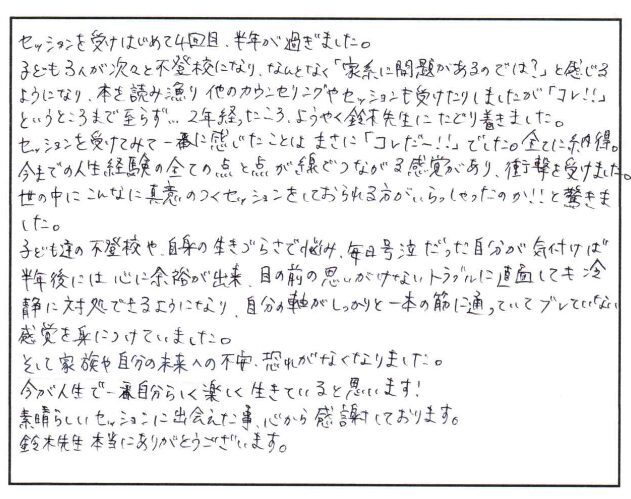 セッションを受けはじめて4回目、半年が過ぎました。
子ども3人が次々と不登校になり、なんとなく「家系に問題があるのでは？」と感じる
ようになり、本を読み漁り 他のカウンセリングやセッションも受けたりしましたが「コレ!!」
というところまで至らず… 2年経ったころ、ようやく鈴木先生にたどり着きました。
セッションを受けてみて一番に感じたことは まさに「コレだー!!」でした。全てに納得。
今までの人生経験の全ての点と点が線でつながる感覚があり、衝撃を受けました。
世の中にこんなに真意のつくセッションをしておられる方がいらっしゃったのか!!と驚きま
した。
子ども達の不登校や、自身の生きづらさで悩み、毎日号泣だった自分が 気付けば
半年後には 心に余裕が出来、目の前の思いがけないトラブルに直面しても 冷
静に対処できるようになり、自分の軸がしっかりと一本の筋に通っていてブレていない
感覚を身につけていました。
そして家族や自分の未来への不安、恐れがなくなりました。
今が人生で一番自分らしく楽しく生きていると思います!
素晴らしいセッションに出会えた事、心から感謝しております。
鈴木先生 本当にありがとうございます。